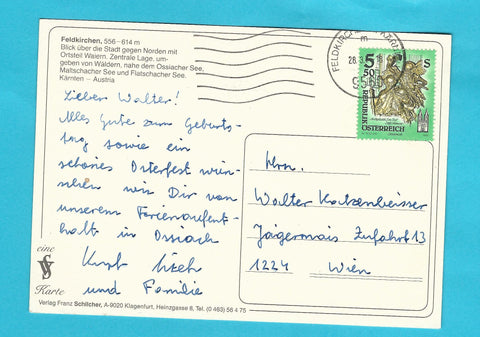 Feldkirchen, 556–614 m
Blick über die Stadt gegen Norden mit
Ortsteil Waiern. Zentrale Lage, um-
geben von Wäldern, nahe dem Ossiacher See,
Maltschacher See und Flatschacher See.
Kärnten – Austria
Lieber Walter!
Alles Gute zum Geburts-
tag sowie ein
schönes Osterfest wün-
schen wir Dir von
unserem Ferienaufent-
halt in Ossiach
Kurt
und Familie
eine
Karte
Verlag Franz Schilcher, A-9020 Klagenfurt, Heinzgasse 8, Tel. (0 463) 56 4 75
FELDKIRCHEN
28.3.
m
5 50
S
REPUBLIK
ÖSTERREICH
Hrn.
Walter Katzenbeisser
Jägermais Zufahrt 13
1224 Wien